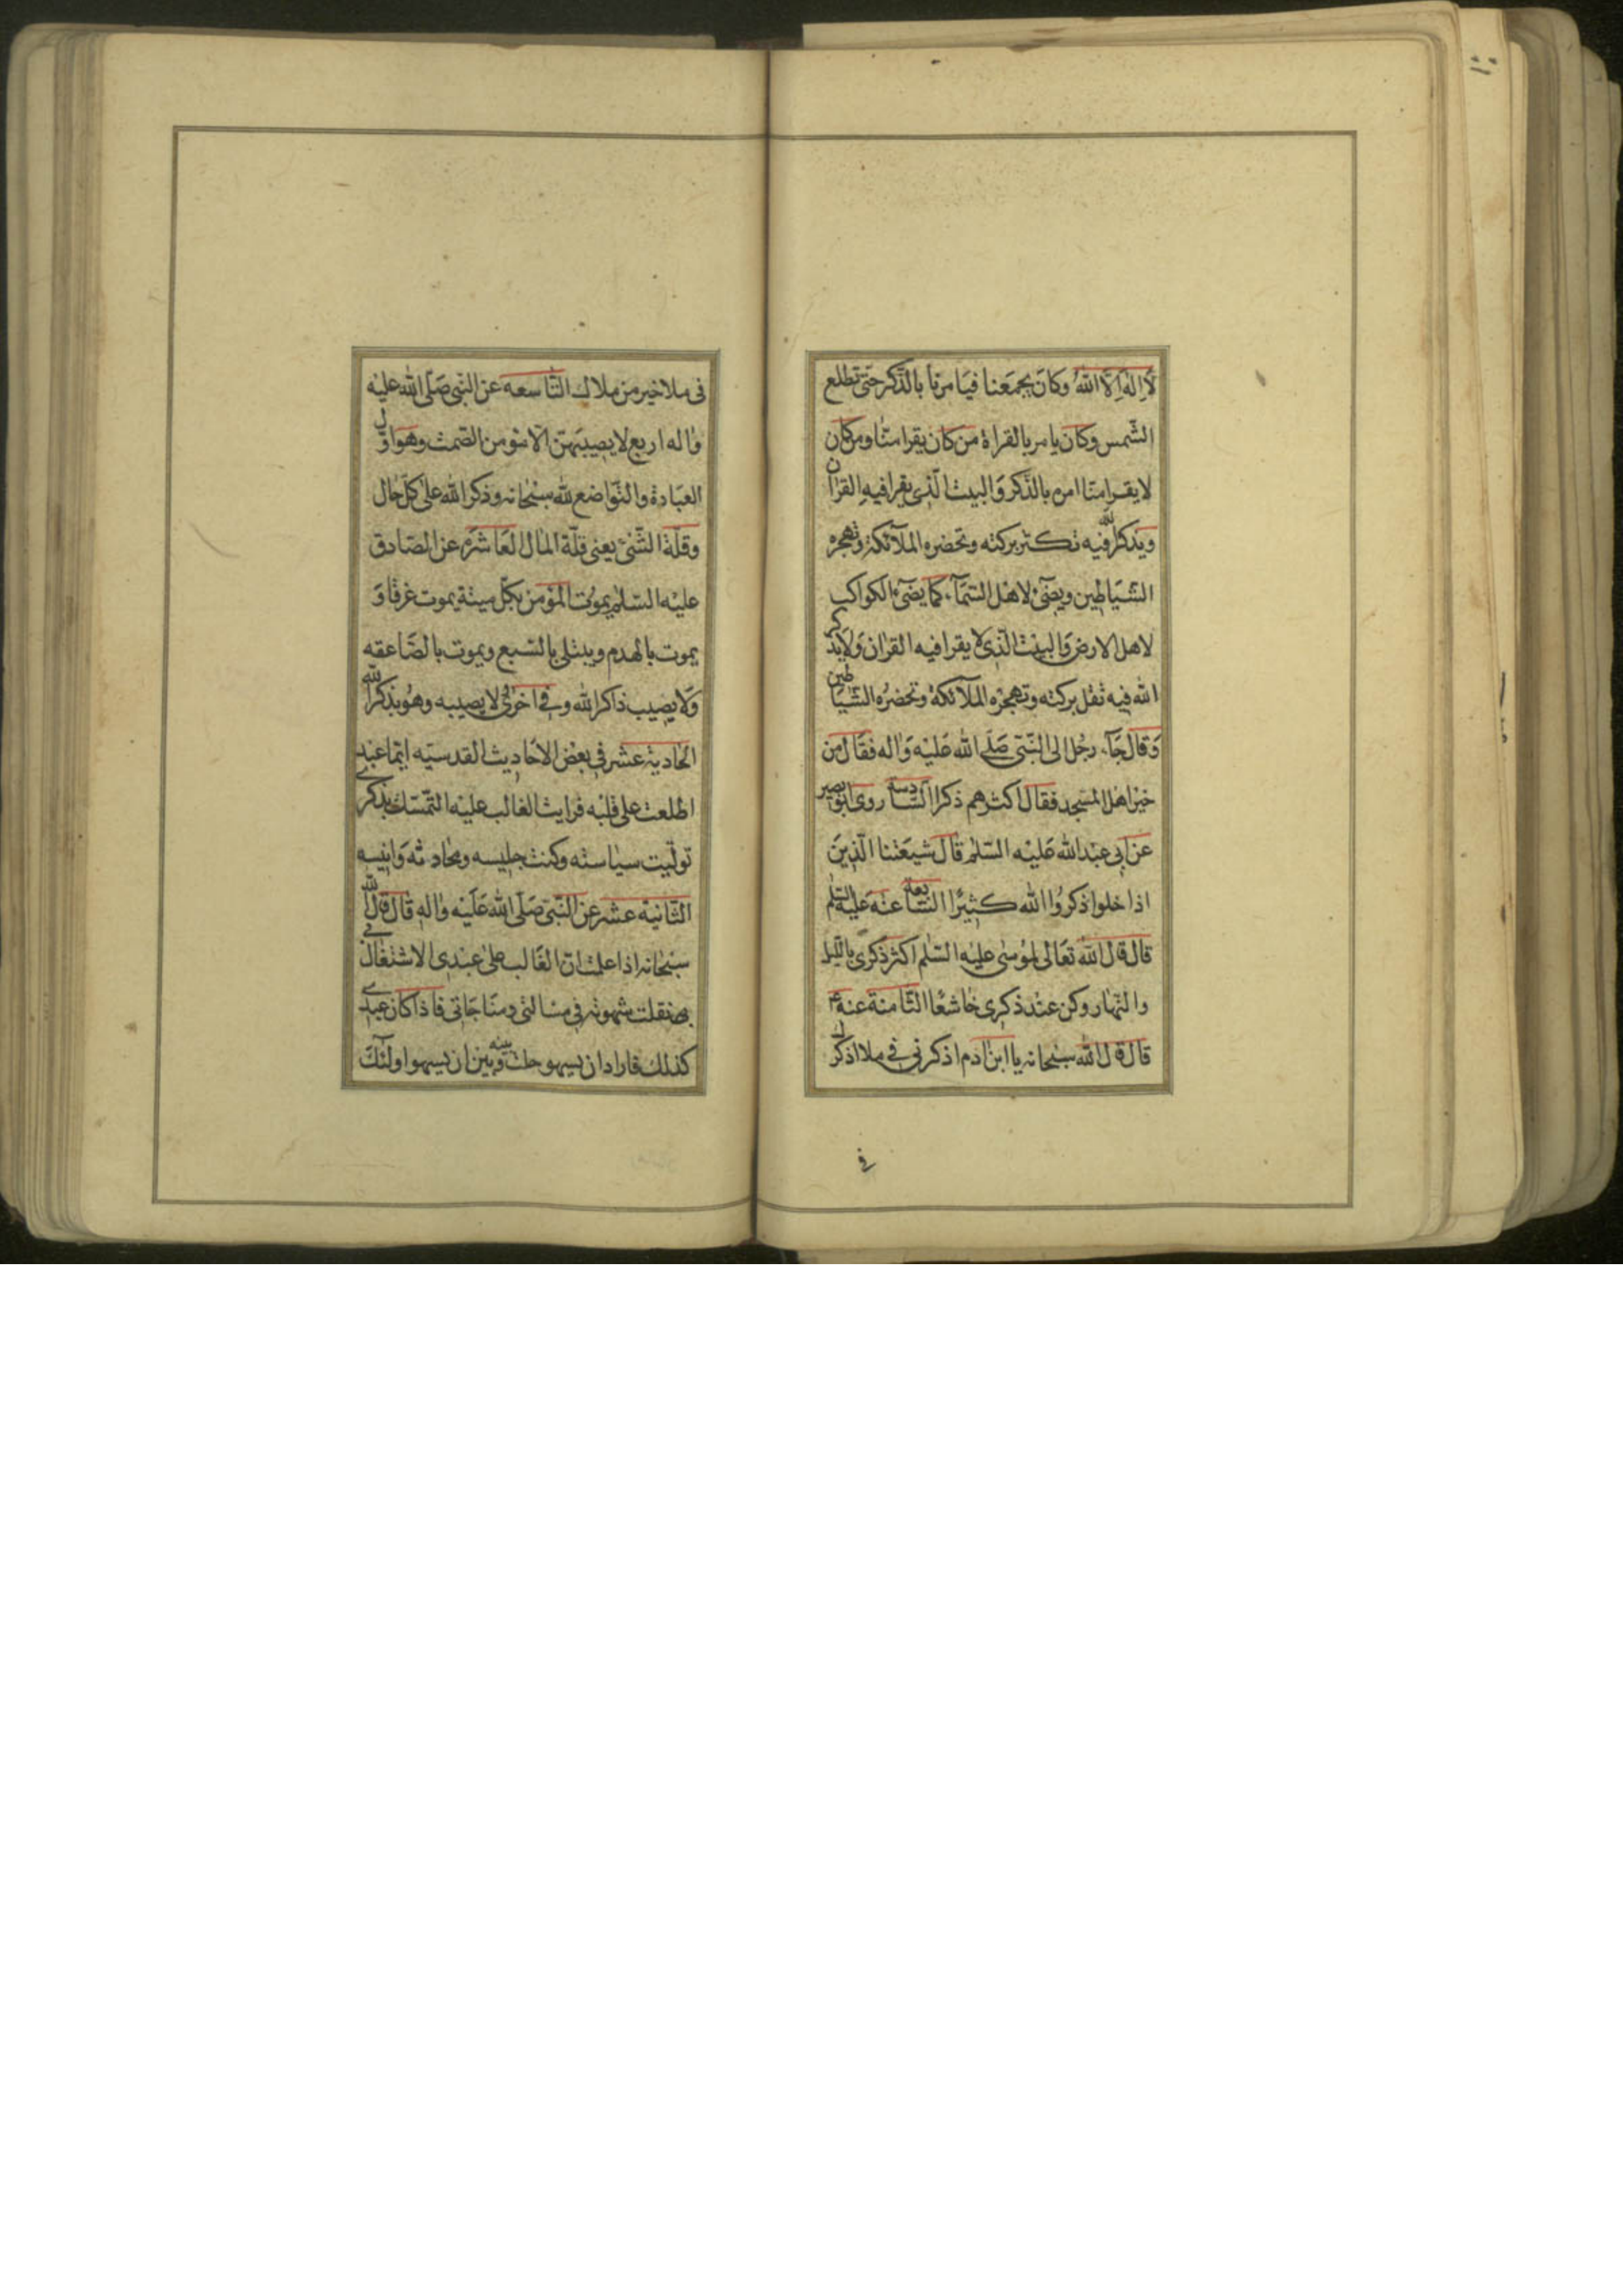 لَا اِلٰهَ اِلَّا اللّٰهُ وكانَ يجمَعنا فيَامرنا بالذّكر حتّى تطلع
الشّمس وكان يامر بالقراة من كان يقرا منّا ومن كان
لا يقرا منّا امره بالذّكر وَالبيت الّذى يقرا فيه القرآن
ويذكر اللّه فيه تكثر بركته وتحضره الملآئكة وتهجره
الشّيَاطين ويضَىٓء لاهل السّمَآء كما يضَىٓء الكواكب
لاهل الارض وَالبيت الّذى لا يقرا فيه القرٰان وَلا يذكر
اللّه فيه تقل بركته وتهجره الملآئكة وتحضرُه الشّيَاطين
وَقال جَآء رجُل الى النّبّى صَلّى اللّه عَليْه وَاٰله فقَال من
خير اهل المسْجد فقال اكثرهم ذكرا السّادسة روى ابُو بصير
عن ابى عبْد اللّه عَليْه السّلٰم قال شيعَتنا الّذينَ
اذا خلوا ذكرُوا اللّه كثيرًا السّابعة عنه عَليْه السّلٰم
قال قال اللّه تعَالى لموُسٰى عليْه السّلٰم اكثر ذكرى باللّيل
والنّهار وكن عنْد ذكرى خاشعًا الثّامنة عنه ع
قال قال اللّه سبْحانه يا ابن اٰدم اذكرنى فى ملا اذكرك
فى
فى ملا خير من ملاك التّاسعه عن النّبى صَلّى اللّه عليْه
وٰاله اربع لا يصيبهنّ الّا مؤمن الصّمت وهوَ اوّل
العبَادة والتّوَاضع للّه سبْحٰانه وذكر اللّه علىٰ كلّ حٰال
وقلّة الشّئ يعنى قلّة المٰال العَاشرَة عن الصّادق
عليْه السّلٰم يموُت المؤمن بكلّ ميتة يموت غرقا وَ
يموت بالهدم ويبتلى بالسّبع ويموت بالصّاعقه
وَلا يصيب ذاكرا للّه وفى اخرٰى لا يصيبه وهُو يذكر اللّه
الحَادية عشر فى بعْض الاحَاديث القدسيّه ايّما عبْد
اطلعت على قلبْه فرايت الغالب عليْه التّمسّك بذكرى
تولّيت سيٰاسته وكنت جليسه ومحٰادثه وَانيسه
الثّانية عشر عن النّبىّ صَلّى اللّه عَليْه وٰاله قال قال اللّه
سبْحٰانه اذا علمت انّ الغَالب علىٰ عبْدى الاشتغال
بى نقلت شهوته فى مسَالتى ومنَاجَاتى فاذا كان عبدى
كذلك فاراد ان يسهو حلت بينه وَبين ان يسهو اولٓئك